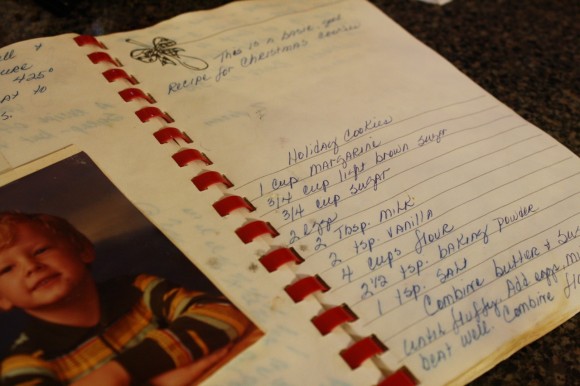 425°
to
This is a basic
Recipe for Christmas Cookies
Holiday Cookies
1 cup margarine
3/4 cup light brown sugar
3/4 cup sugar
2 eggs
2 Tbsp. milk
2 tsp. vanilla
4 cups flour
2 1/2 tsp. baking powder
1 tsp. salt
Combine butter +
until fluffy. Add eggs,
beat well. Combine